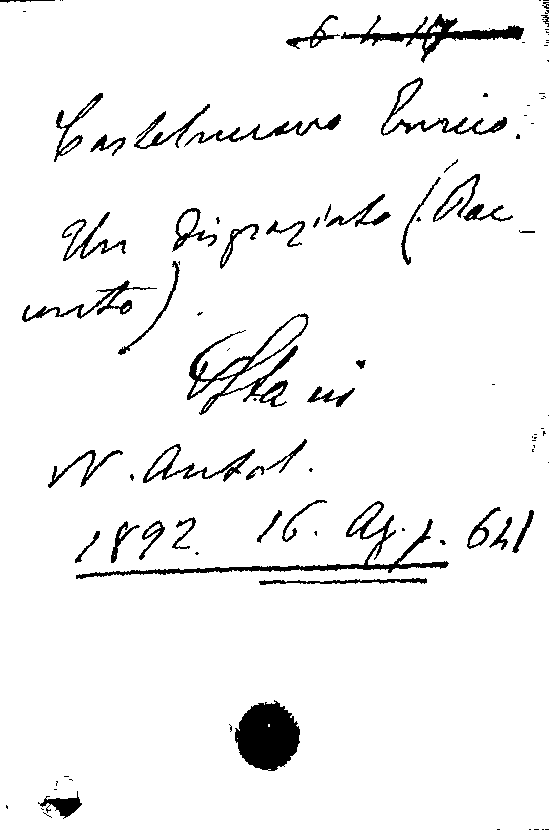 6-4-17
Castelnuovo Enrico.
Un disgraziato (Rac-
conto).
Sta in
N. Antol.
1892. 16. Ag. p. 641